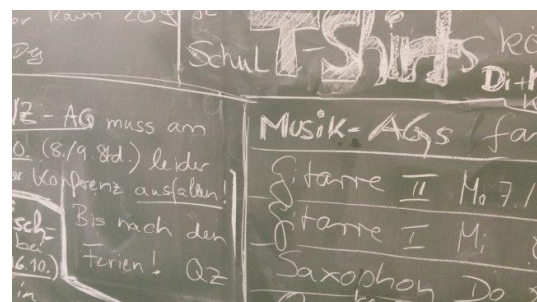 Raum 209
Schul T-Shirts kö
Z-AG muss am
(8./9. Std.) leider
Konferenz ausfallen!
Bis nach den
Ferien! QZ
sch-
bei
16.10.)
in
Musik-AGs
Gitarre II Mo 7./
Gitarre I Mi
Saxophon Do